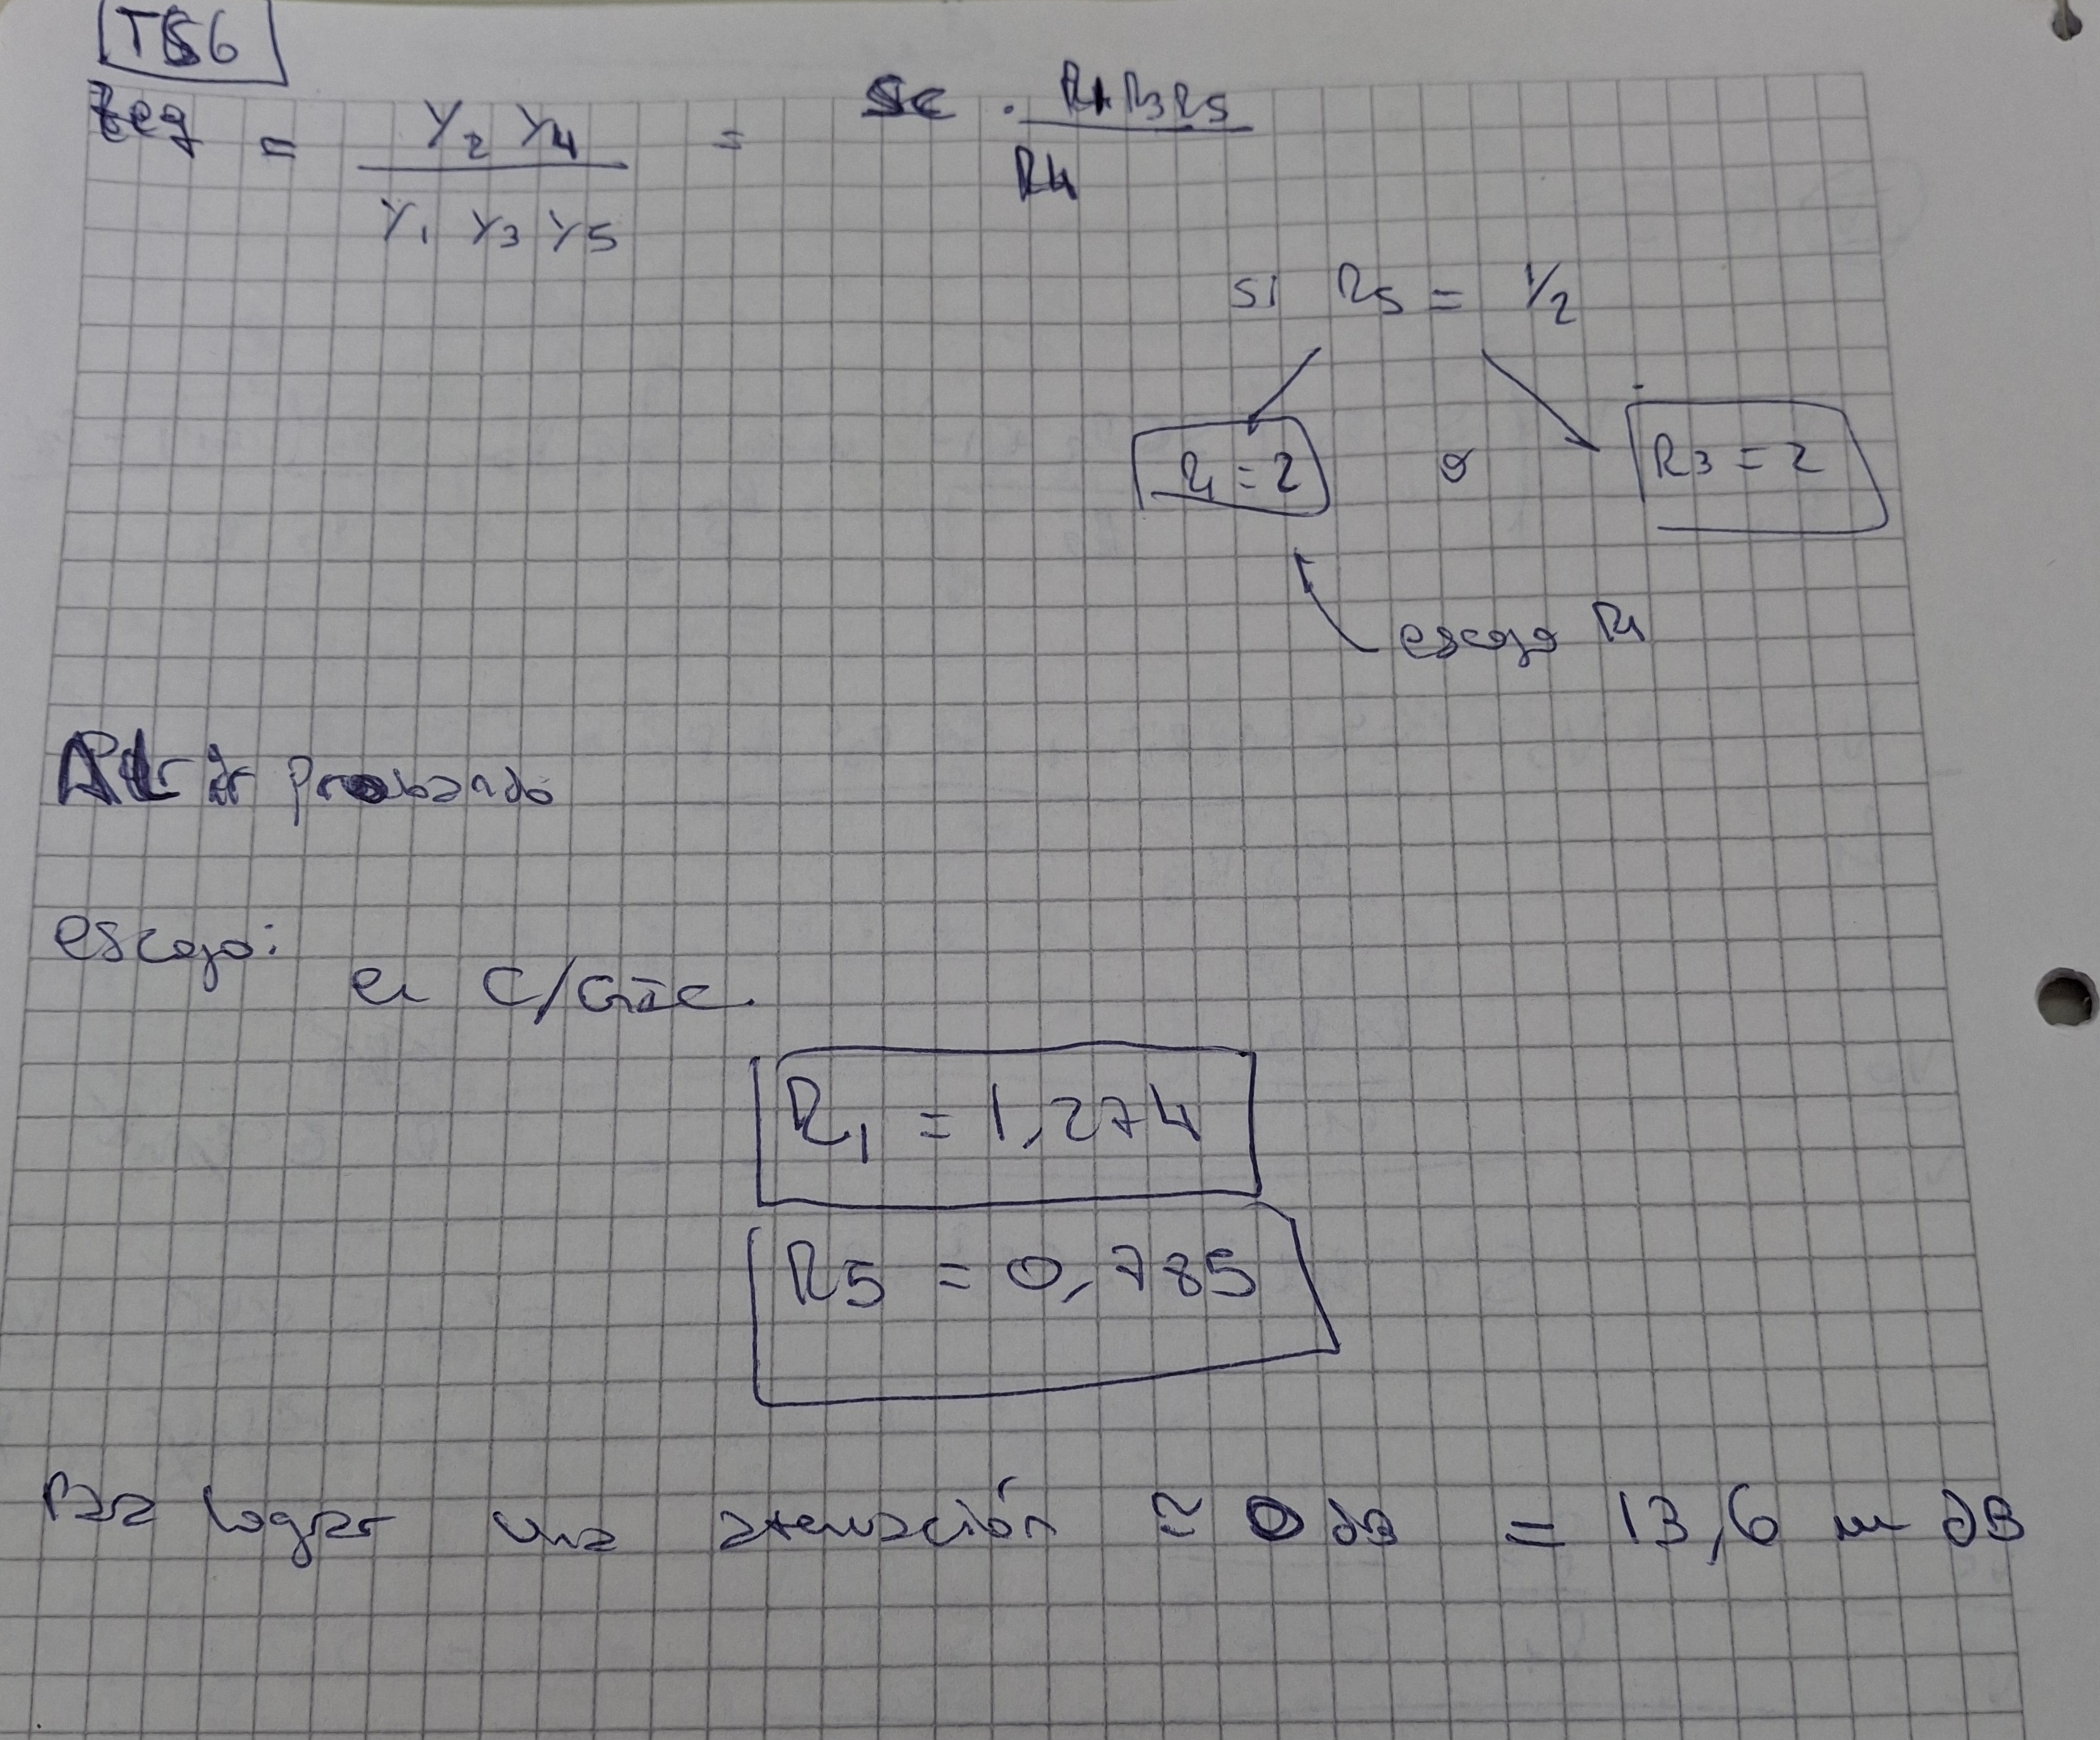 TS6
Zeq = Y2 Y4 / Y1 Y3 Y5 = SC . R1 R3 R5 / R4
si R5 = 1/2
R1 = 2 o R3 = 2
escojo R1
Al ir probando
escojo:
en c/GIC.
R1 = 1,274
R5 = 0,785
Para lograr una atenuación ≅ 0 dB = 13,6 m dB